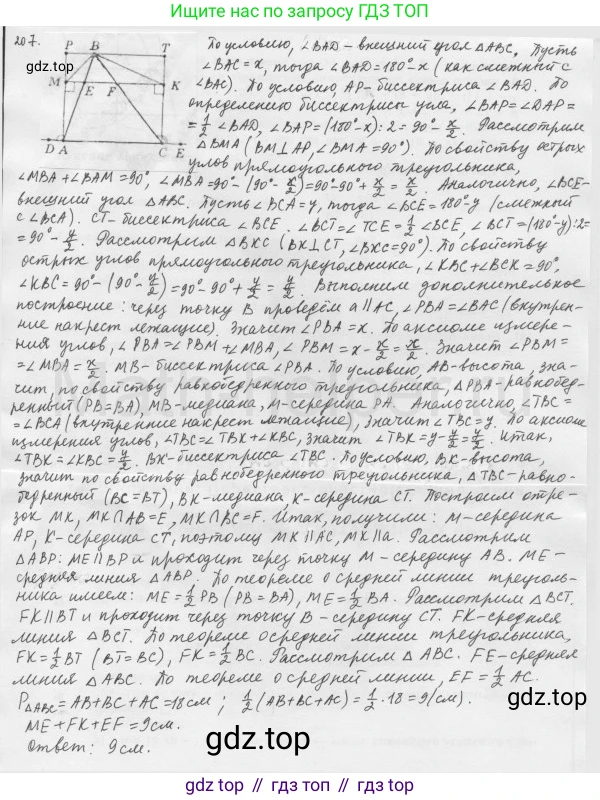 Ищите нас по запросу ГДЗ ТОП
207.
P B T
gdz.top
M E F K
D A C E
По условию, ∠BAD – внешний угол ΔABC. Пусть
∠BAC = x, тогда ∠BAD = 180° - x (как смежный с
∠BAC). По условию, AP - биссектриса ∠BAD. По
определению биссектрисы угла, ∠BAP = ∠DAP =
= 1/2 ∠BAD, ∠BAP = (180° - x) : 2 = 90° - x/2. Рассмотрим
ΔBMA (BM ⊥ AP, ∠BMA = 90°). По свойству острых
углов прямоугольного треугольника,
∠MBA + ∠BAM = 90°, ∠MBA = 90° - (90° - x/2) = 90° - 90° + x/2 = x/2. Аналогично, ∠BCE -
внешний угол ΔABC. Пусть ∠BCA = y, тогда ∠BCE = 180° - y (смежный
с ∠BCA). CT - биссектриса ∠BCE. ∠BCT = ∠TCE = 1/2 ∠BCE, ∠BCT = (180° - y) : 2 =
= 90° - y/2. Рассмотрим ΔBKC (BK ⊥ CT, ∠BKC = 90°). По свойству
острых углов прямоугольного треугольника, ∠KBC + ∠BCK = 90°,
∠KBC = 90° - (90° - y/2) = 90° - 90° + y/2 = y/2. Выполним дополнительное
построение: через точку B проведём a ∥ AC, ∠PBA = ∠BAC (внутрен-
ние накрест лежащие). Значит ∠PBA = x. По аксиоме измере-
ния углов, ∠PBA = ∠PBM + ∠MBA, ∠PBM = x - x/2 = x/2. Значит ∠PBM =
= ∠MBA = x/2. MB - биссектриса ∠PBA. По условию, AB - высота, зна-
чит, по свойству равнобедренного треугольника, ΔPBA - равнобед-
ренный (PB = BA), MB - медиана, M - середина PA. Аналогично, ∠TBC =
= ∠BCA (внутренние накрест лежащие), значит ∠TBC = y. По аксиоме
измерения углов, ∠TBC = ∠TBK + ∠KBC, значит ∠TBK = y - y/2 = y/2. Итак,
∠TBK = ∠KBC = y/2. BK - биссектриса ∠TBC. По условию, BK - высота,
значит по свойству равнобедренного треугольника, ΔTBC - равно-
бедренный (BC = BT), BK - медиана, K - середина CT. Построим отре-
зок MK, MK ∩ AB = E, MK ∩ BC = F. Итак, получили: M - середина
AP, K - середина CT, поэтому MK ∥ AC, MK ∥ a. Рассмотрим
ΔABP: ME ∥ BP и проходит через точку M - середину AB. ME -
средняя линия ΔABP. По теореме о средней линии треуголь-
ника имеем: ME = 1/2 PB (PB = BA), ME = 1/2 BA. Рассмотрим ΔBCT.
FK ∥ BT и проходит через точку B - середину CT. FK - средняя
линия ΔBCT. По теореме о средней линии треугольника,
FK = 1/2 BT (BT = BC), FK = 1/2 BC. Рассмотрим ΔABC. FE - средняя
линия ΔABC. По теореме о средней линии, EF = 1/2 AC.
PΔABC = AB + BC + AC = 18 см; 1/2 (AB + BC + AC) = 1/2 · 18 = 9 (см).
ME + FK + EF = 9 см.
Ответ: 9 см.
gdz.top
gdz.top
gdz.top // гдз.топ // gdz.top // гдз.топ